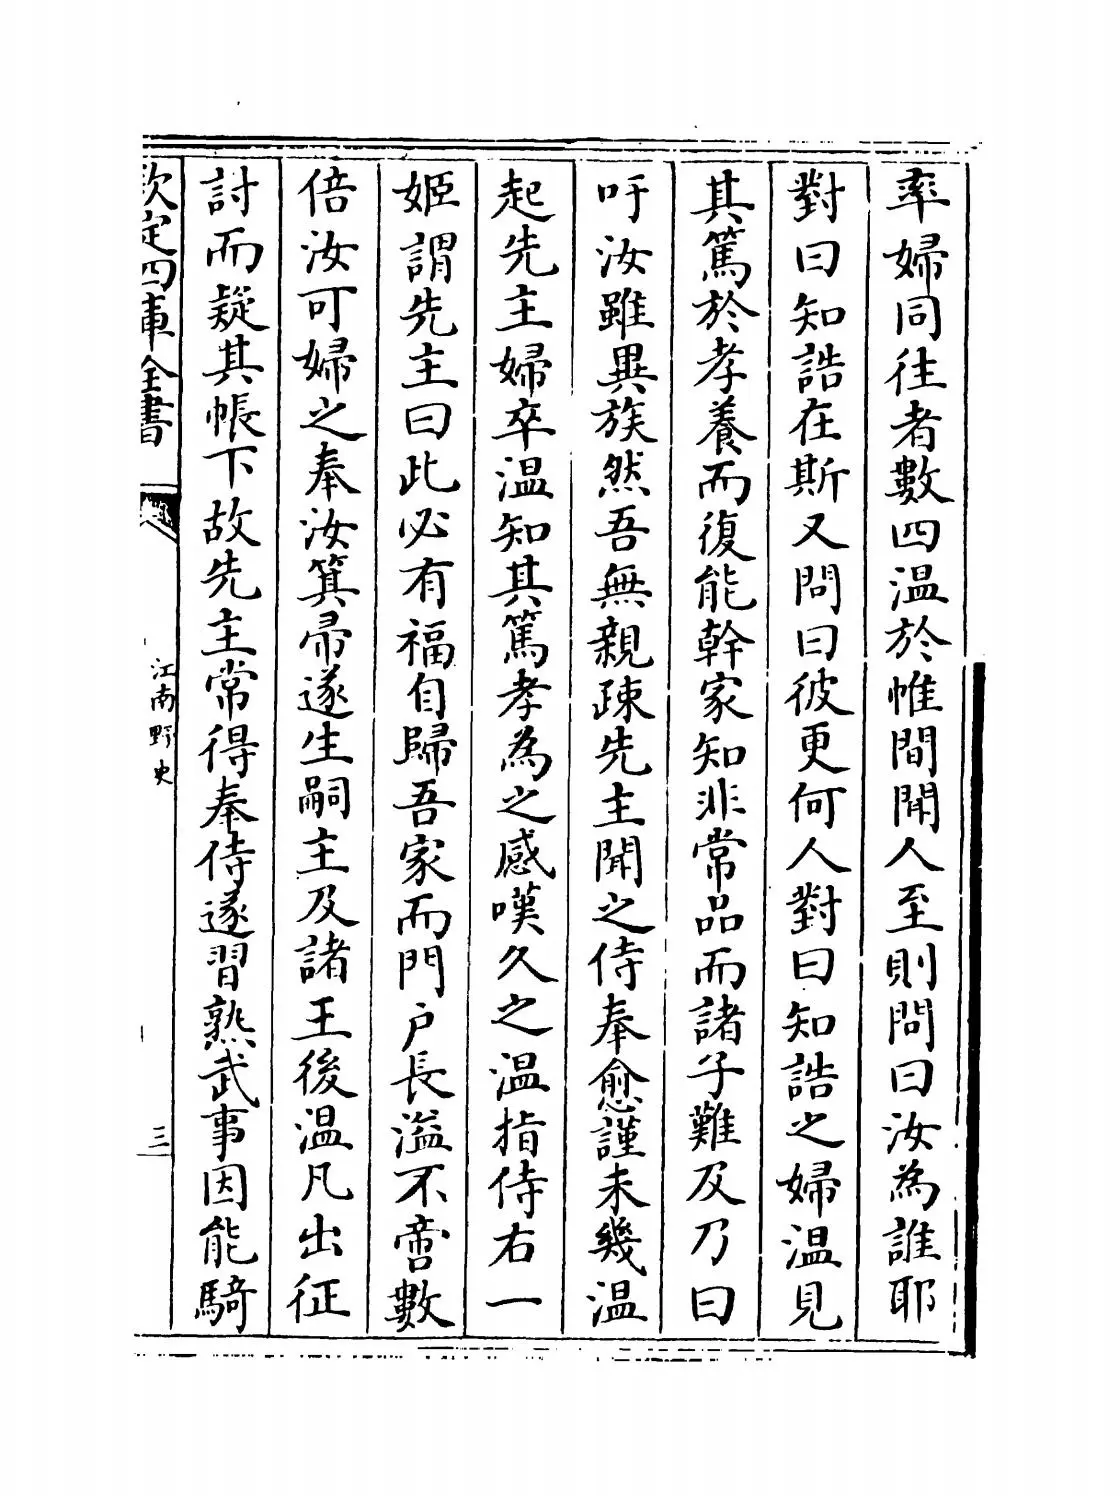 率婦同往者數四温於帷間聞人至則問曰汝為誰耶
對曰知誥在斯又問曰彼更何人對曰知誥之婦温見
其篤於孝養而復能幹家知非常品而諸子難及乃曰
吁汝雖異族然吾無親疎先主聞之侍奉愈謹未幾温
起先主婦卒温知其篤孝為之感嘆久之温指侍右一
姬謂先主曰此必有福自歸吾家而門户長溢不啻數
倍汝可婦之奉汝箕帚遂生嗣主及諸王後温凡出征
討而疑其帳下故先主常得奉侍遂習熟武事因能騎
欽定四庫全書
江南野史
三